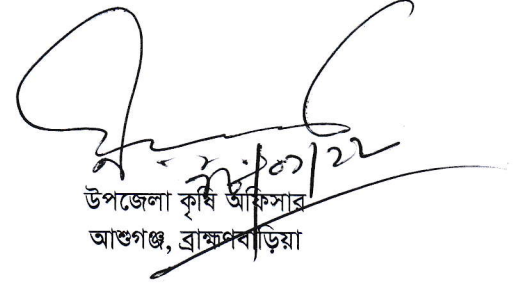 উপজেলা কৃষি অফিসার
আশুগঞ্জ, ব্রাহ্মণবাড়িয়া